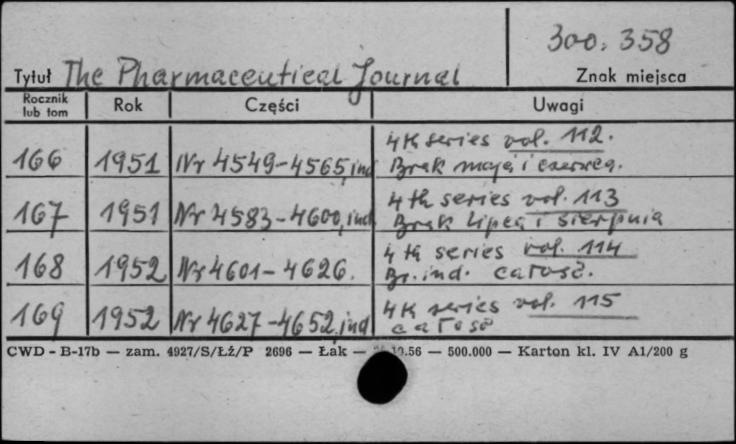 300.358
Tytuł The Pharmaceutical Journal
Znak miejsca
Rocznik lub tom Rok Części Uwagi
4th series vol. 112.
166 1951 Nr 4549-4565, ind Brak maja i czerwca.
4th series vol. 113
167 1951 Nr 4583-4600, ind Brak lipca i sierpnia
4th series vol. 114
168 1952 Nr 4601-4626. Br. ind. całość.
4th series vol. 115
169 1952 Nr 4627-4652, ind całość
CWD - B-17b — zam. 4927/S/Łż/P 2696 — Łąk — 10.56 — 500.000 — Karton kl. IV A1/200 g